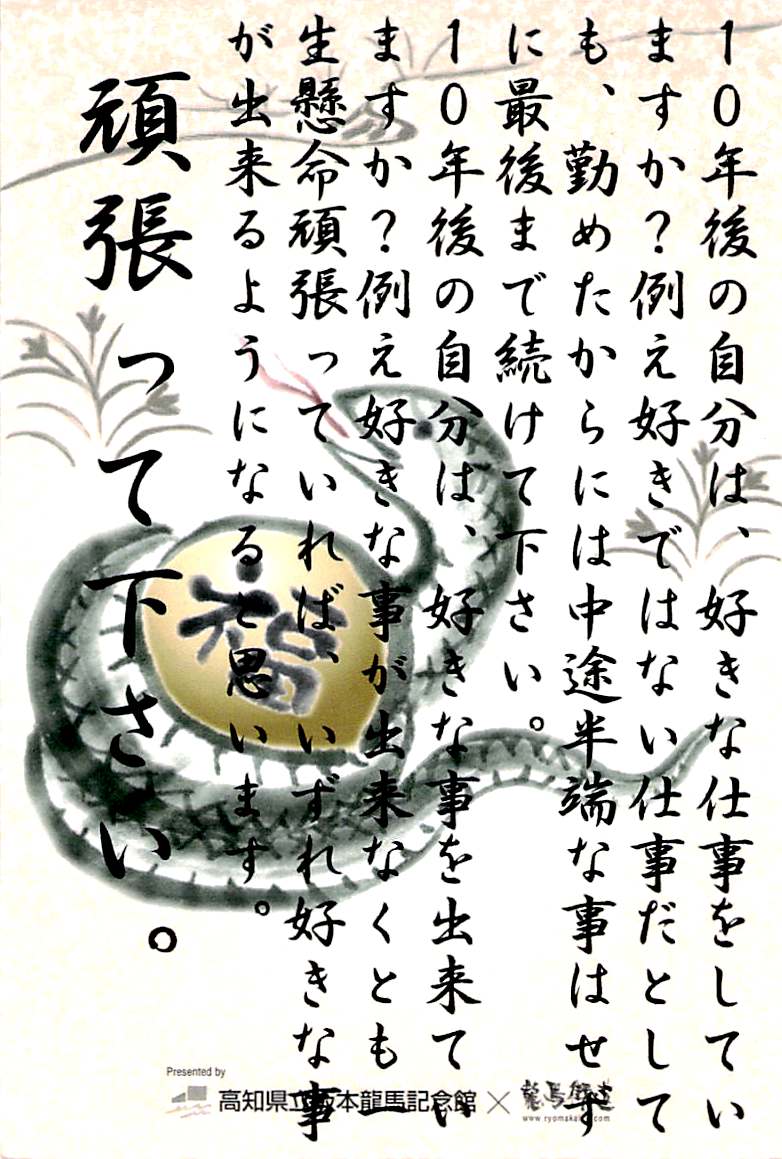 １０年後の自分は、好きな仕事をしてい
ますか？例え好きではない仕事だとして
も、勤めたからには中途半端な事はせず
に最後まで続けて下さい。
１０年後の自分は、好きな事を出来てい
ますか？例え好きな事が出来なくとも一
生懸命頑張っていれば、いずれ好きな事
が出来るようになると思います。
頑張って下さい。
福
Presented by
高知県立坂本龍馬記念館 × 龍馬街道
www.ryomakaido.com